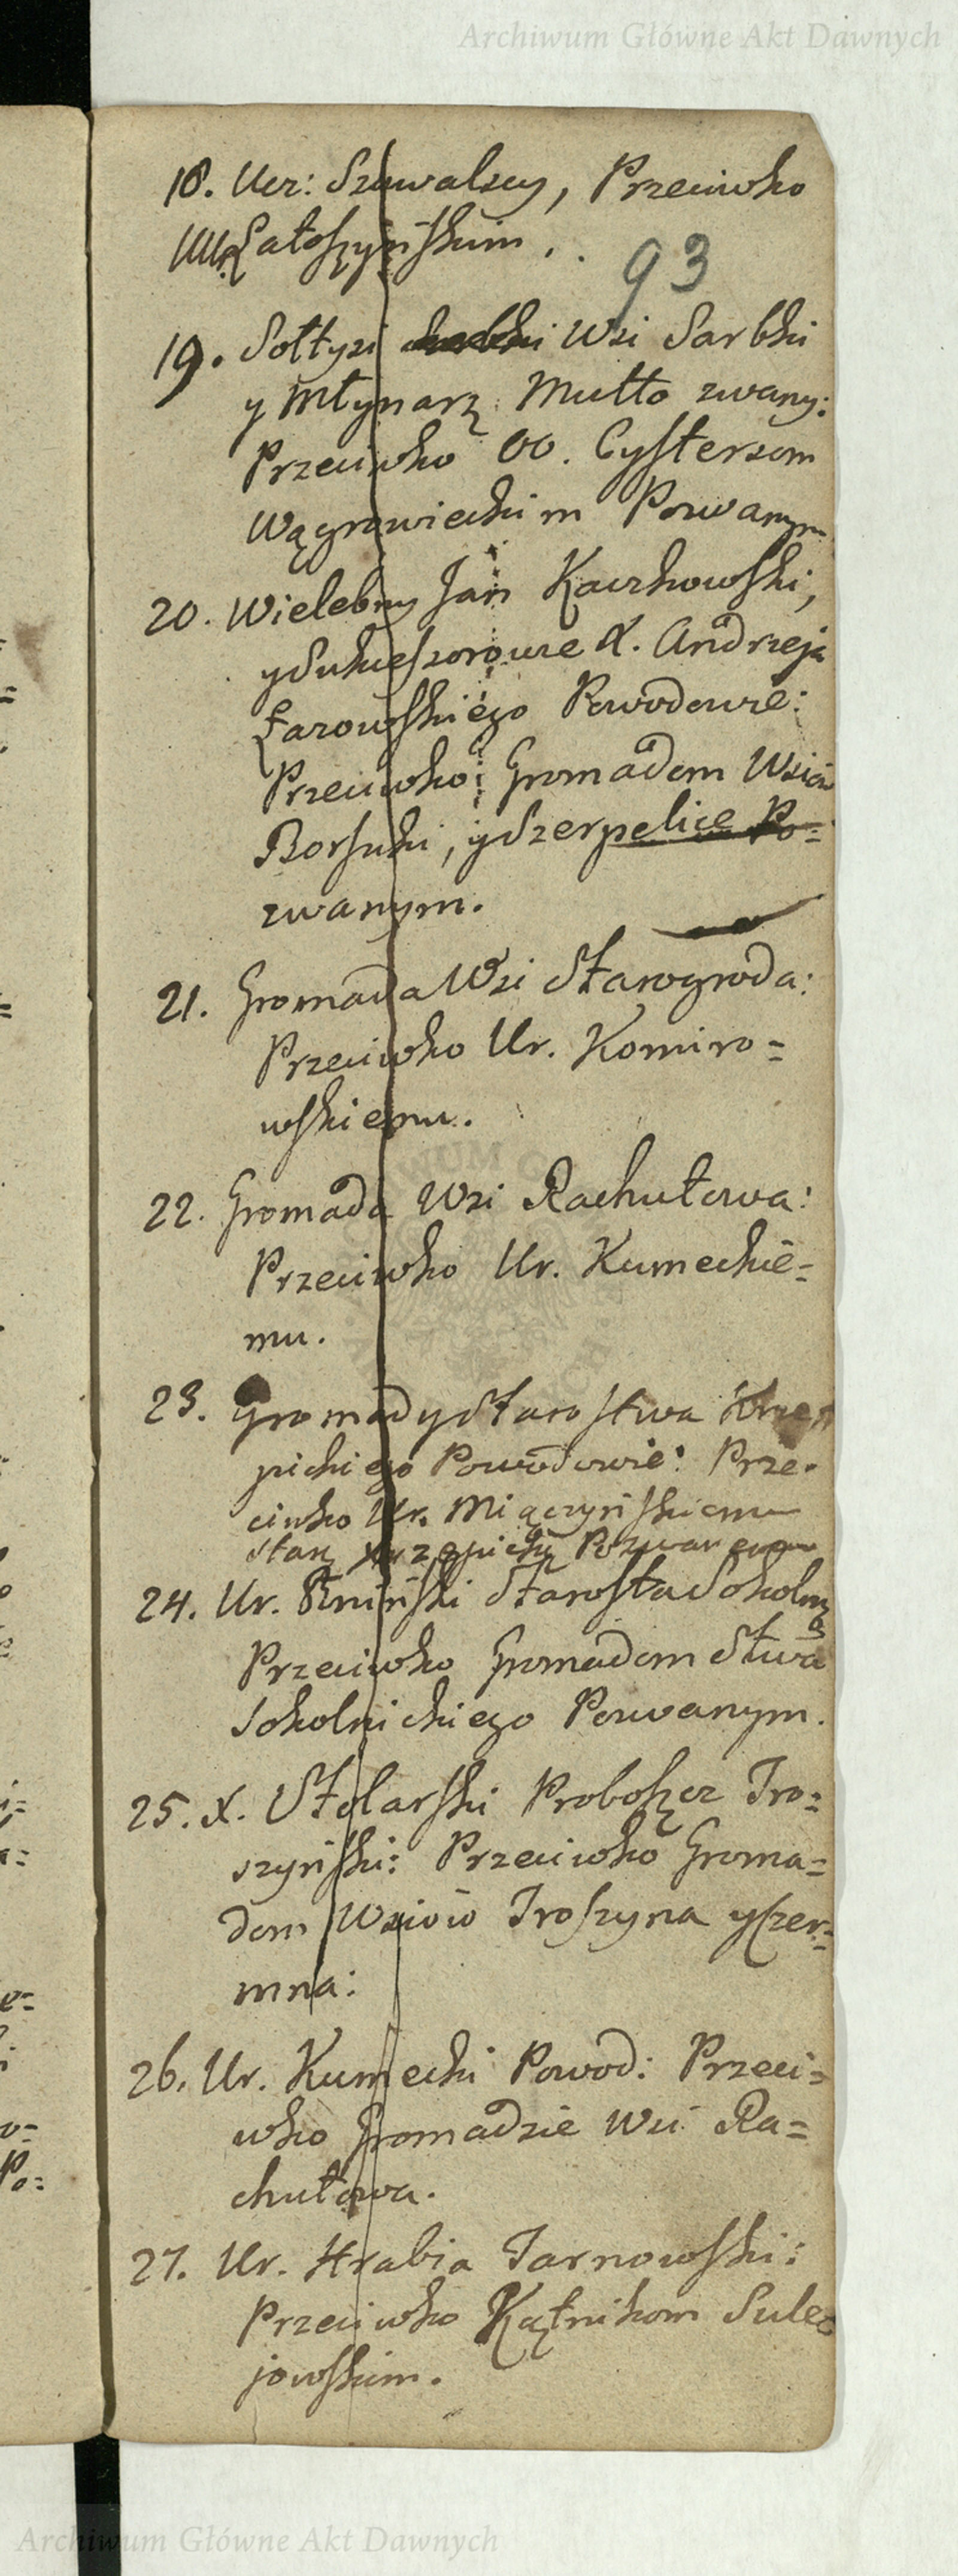 Archiwum Główne Akt Dawnych
18. Uer: Szuwalscy, Przeciwko
UUr. Łatoszyńskim.
93
19. Sołtysi Wsi Sarbki
y Młynarz Mutto zwany:
Przeciwko OO. Cystersom
Wągrowieckim Pozwanym
20. Wielebny Jan Kaczkowski,
y Sukcessorowie X. Andrzeja
Łazowskiego Powodowie:
Przeciwko Gromadom Wsiów
Borsuki, y Szerpelice Po=
zwanym.
21. Gromada Wsi Starogroda:
Przeciwko Ur. Komiro=
wskiemu.
22. Gromada Wsi Rachutowa:
Przeciwko Ur. Kumeckie=
mu.
23. Gromady Starostwa Krze
pickiego Powodowie: Prze=
ciwko Ur. Miączyńskiemu
Star. Krzepicki Pozwanemu
24. Ur. Starosta Sokoln.
Przeciwko Gromadom Stwa
Sokolnickiego Pozwanym.
25. X. Stolarski Proboszcz Tro=
szyński: Przeciwko Groma=
dom Wsiów Troszyna y Czer=
mna:
26. Ur. Kumecki Powod: Przeci=
wko Gromadzie Wsi Ra=
chutowa.
27. Ur. Hrabia Tarnowski:
Przeciwko Kątnikom Suleo
jowskim.
Archiwum Główne Akt Dawnych